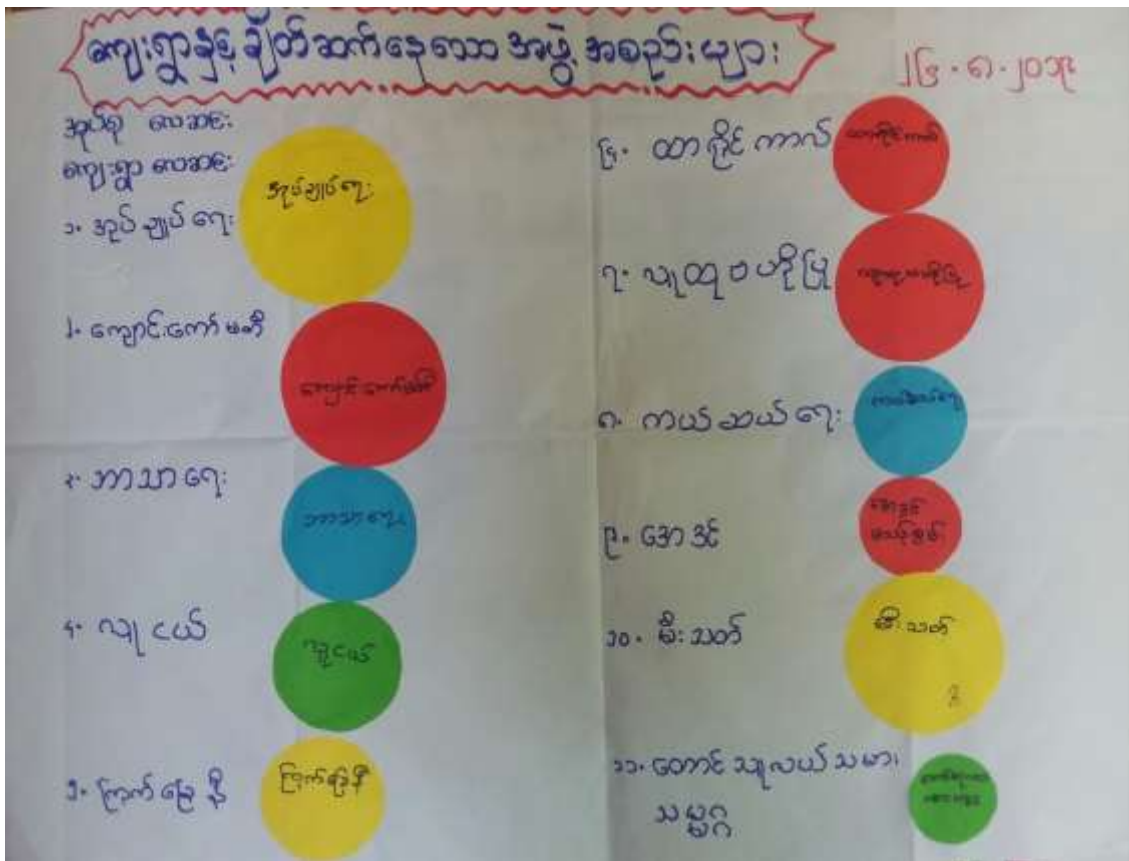 ကျေးရွာနှင့် ချိတ်ဆက်နေသော အဖွဲ့အစည်းများ
၂၆.၈.၂၀၁၉
အုပ်စု လေဆန်း
ကျေးရွာ လေဆန်း
၁. အုပ်ချုပ်ရေး
အုပ်ချုပ်ရေး
၂. ကျောင်းကော်မတီ
ကျောင်းကော်မတီ
၃. ဘာသာရေး
ဘာသာရေး
၄. လူငယ်
လူငယ်
၅. ကြက်ခြေနီ
ကြက်ခြေနီ
၆. ထာရိုင်ကာလ်
ထာရိုင်ကာလ်
၇. လူထုဗဟိုပြု
လူထုဗဟိုပြု
၈. ကယ်ဆယ်ရေး
ကယ်ဆယ်ရေး
၉. အောဒင်
အောဒင်
၁၀. မီးသတ်
မီးသတ်
၁၁. တောင်သူလယ်သမား
သမဂ္ဂ